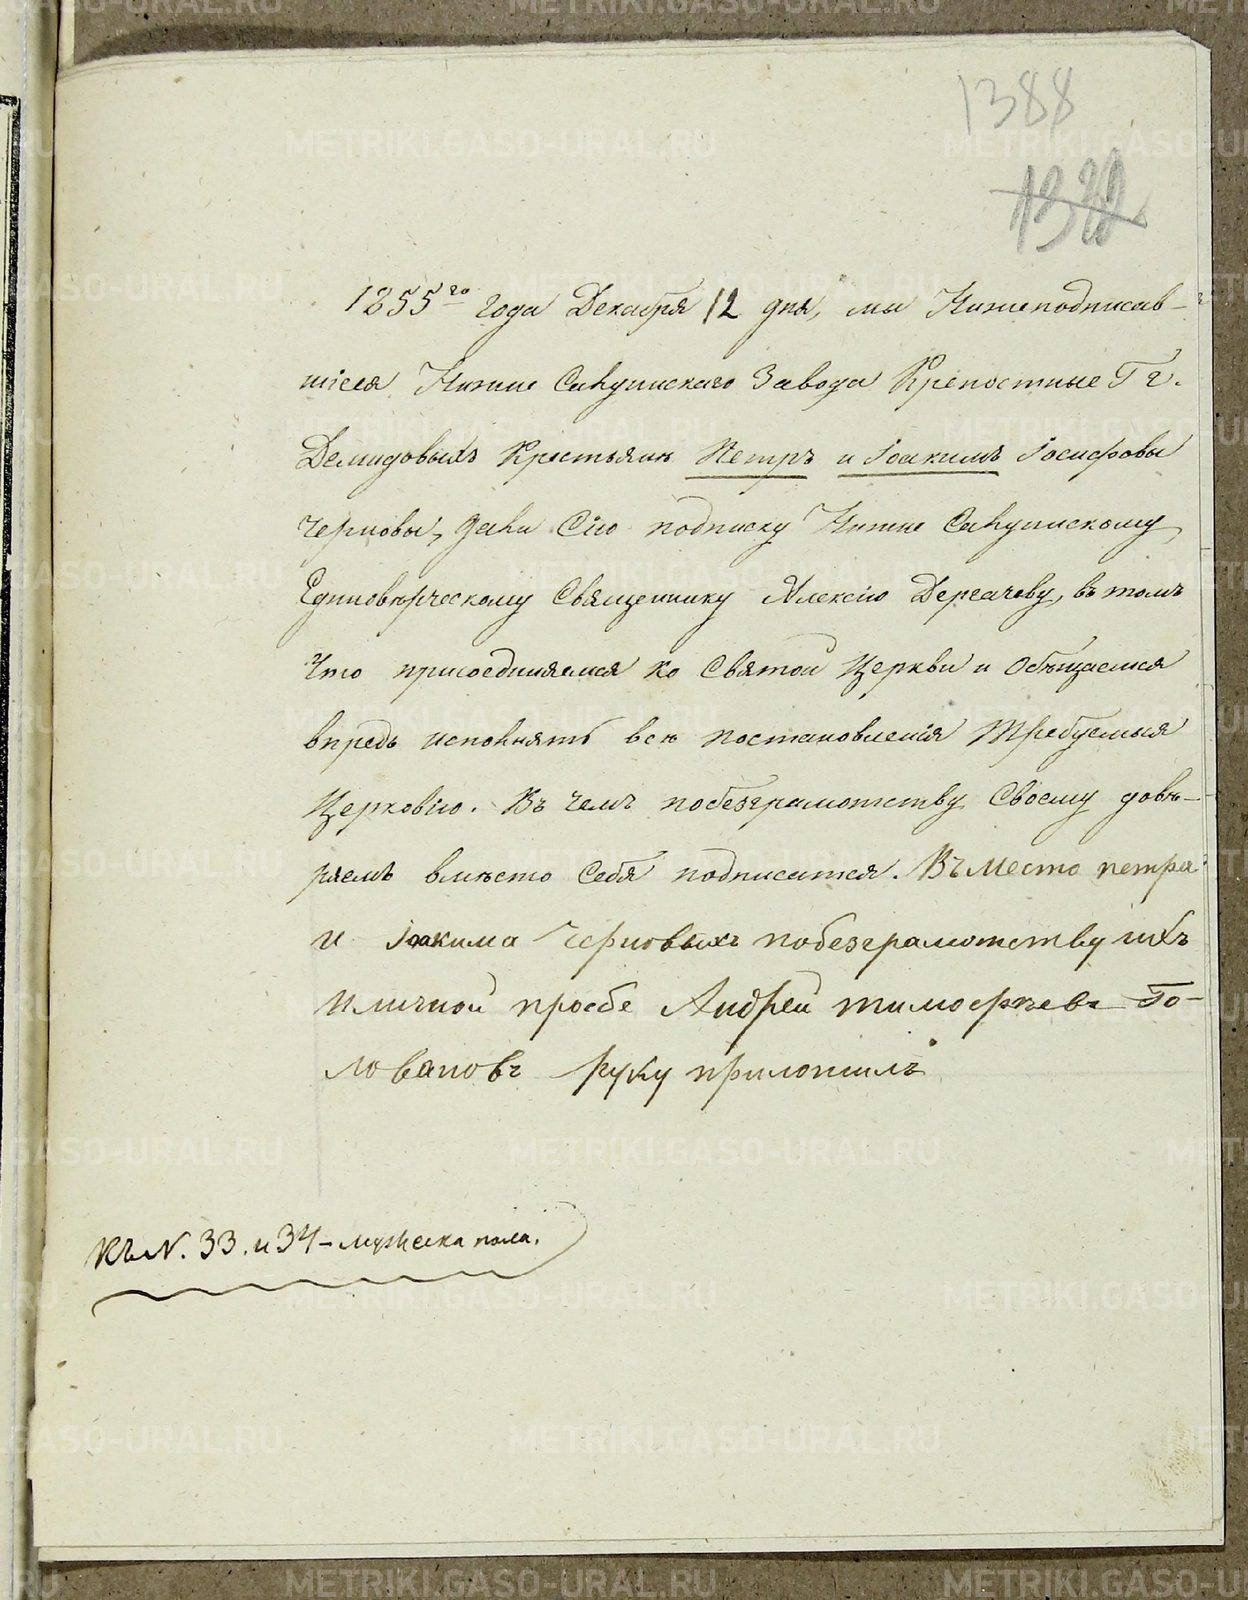 1388
1382
1855го года Декабря 12 дня, мы Нижеподписав-
шіеся Нижне Салдинскаго Завода Крепостные Гг.
Демидовыхъ Крестьяне Петръ и Іоакимъ Іосифовы
Черновы, дали Сію подписку Нижне Салдинскому
Единовѣрческому Священнику Алексію Дергачеву, въ томъ
Что присоединяемся ко Святой Церкви и Обѣщаемся
впредь исполнять всѣ постановленія Требуемыя
Церковію. Въ чемъ побезграмотству Своему довѣ-
ряемъ вмѣсто Себя подписатся. Въместо петра
и Іоакима Черновыхъ побезграмотству ихъ
иличной прозбе Андрей тимофѣевъ Го-
ловановъ руку приложилъ
Къ N. 33. и 34 - мужеска пола.
METRIKI.GASO-URAL.RU